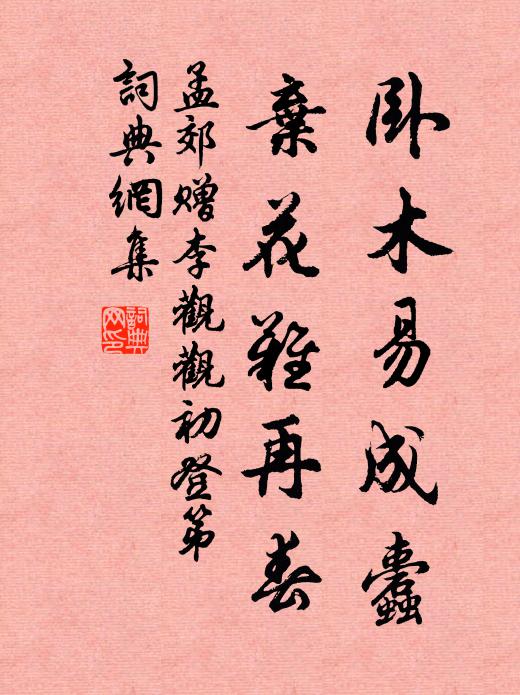 卧木易成蠹
棄花難再春
孟郊赠李觀觀初登第
詞典網集
詞典
网印